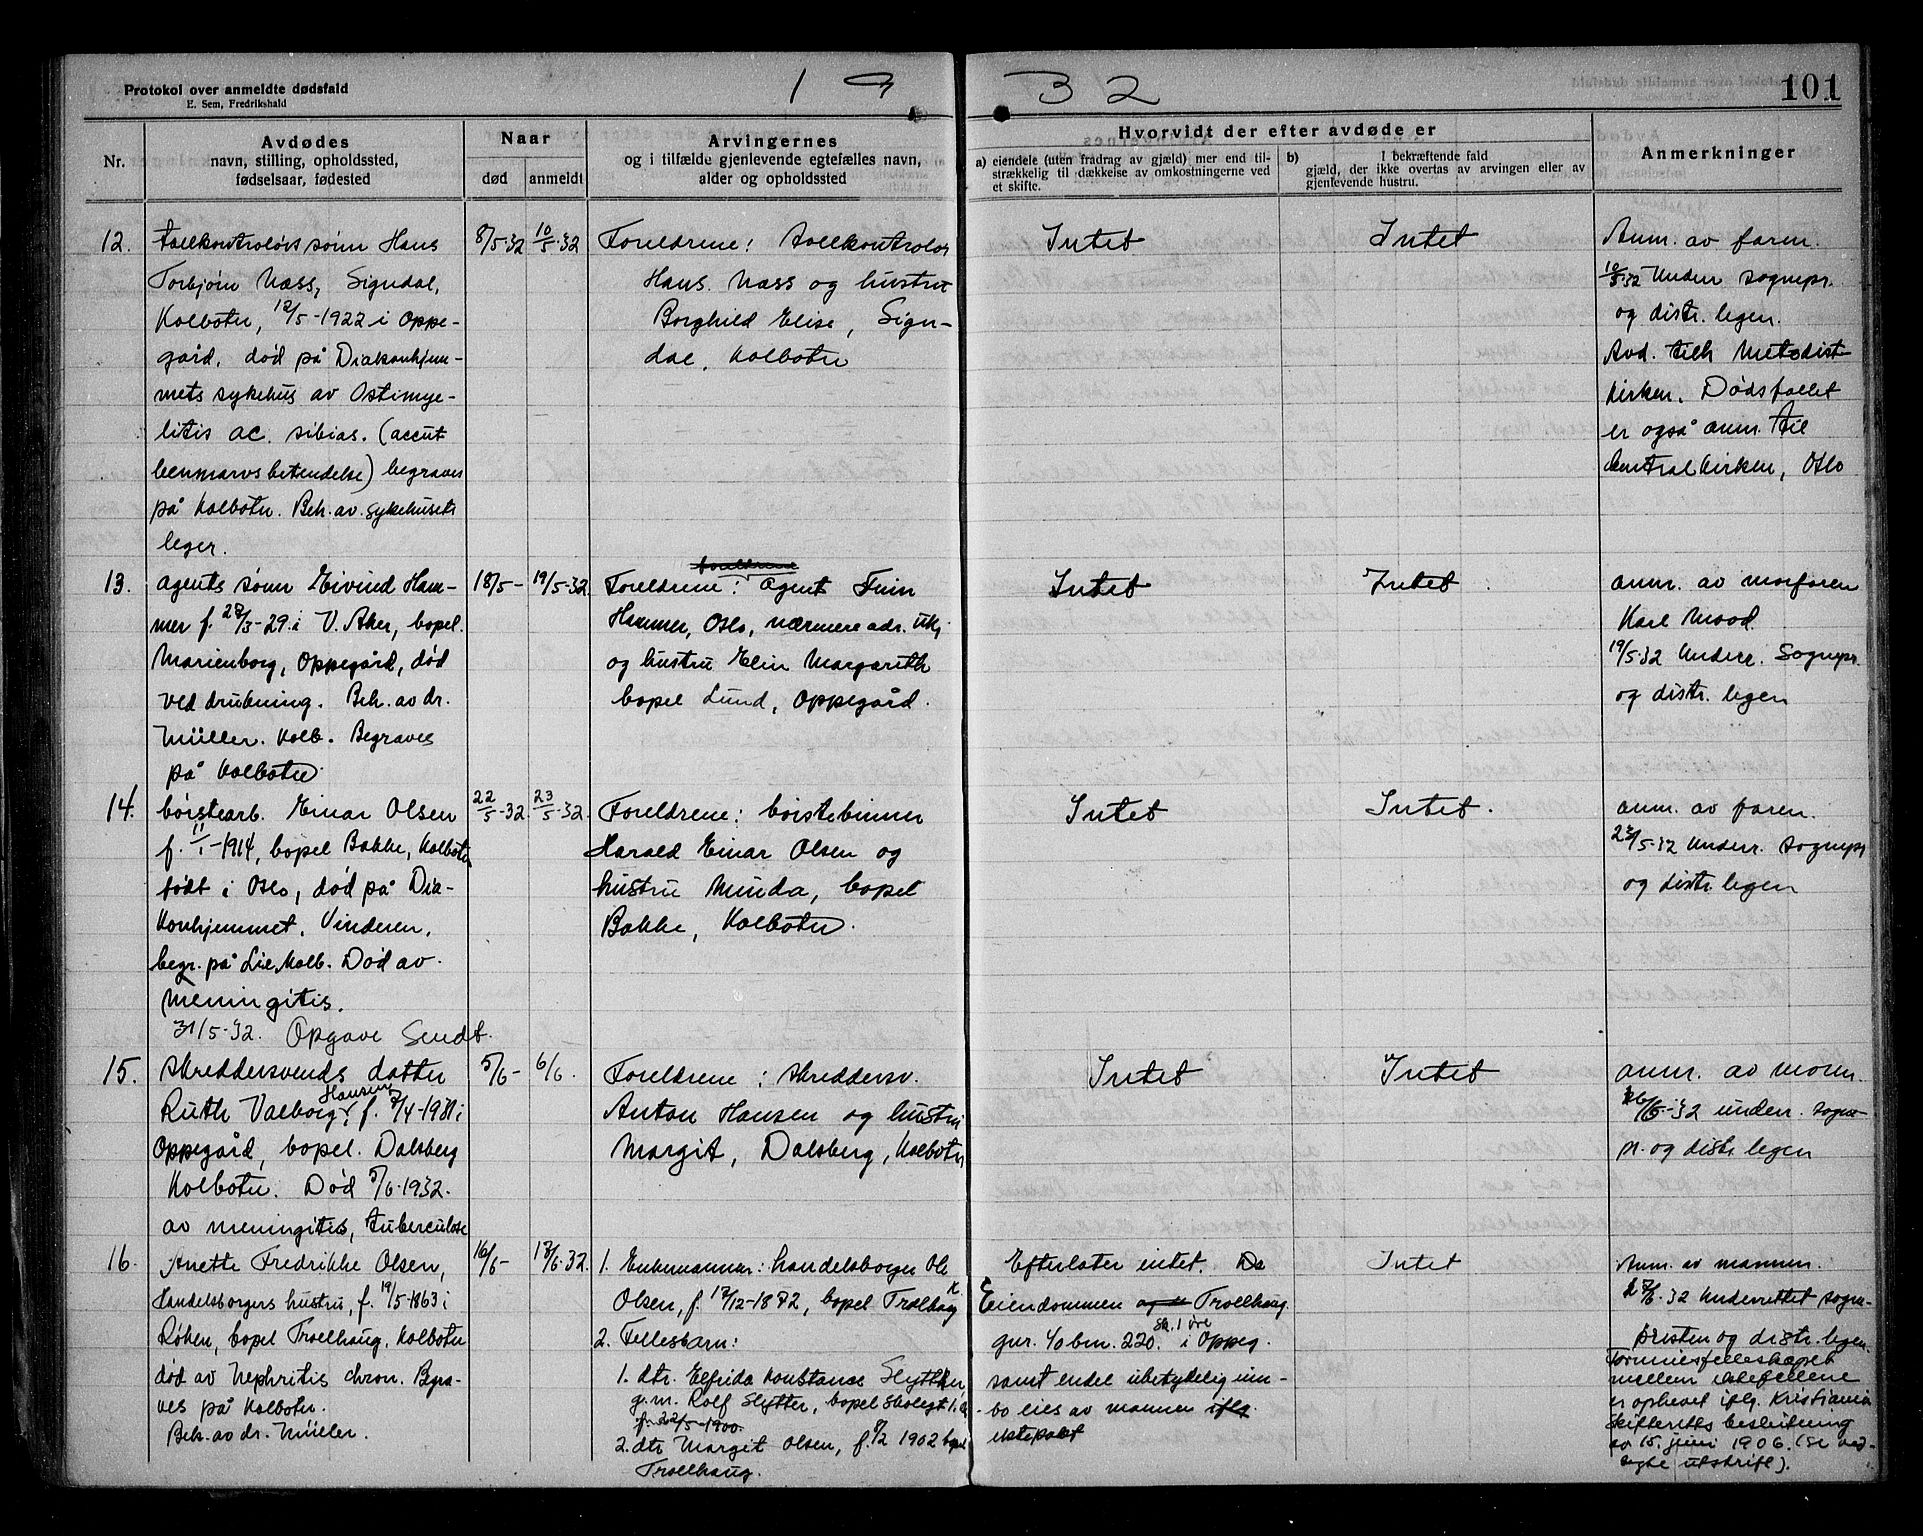 Protokol over anmeldte dødsfald
E. Sem, Fredrikshald
1 9 3 2
101
Nr.
Avdødes
navn, stilling, opholdssted,
fødselsaar, fødested
Naar
død
anmeldt
Arvingernes
og i tilfælde gjenlevende egtefælles navn,
alder og opholdssted
Hvorvidt der efter avdøde er
a) eiendele (uten fradrag av gjæld) mer end til-
strækkelig til dækkelse av omkostningerne ved
et skifte.
b) I bekræftende fald
gjæld, der ikke overtas av arvingen eller av
gjenlevende hustru.
Anmerkninger
12.
tollkontrolørs sønn Hans
Torbjørn Næss, Signdal,
Kolbotn, 12/5-1922 i Oppe-
gård, død på Diakonhjem-
mets sykehus av Ostimye-
litis ac. sibias. (accut
benmarvsbetendelse) begraves
på Kolbotn. Beh. av sykehusets
leger.
8/5-32
10/5-32
Foreldrene: tollkontrolør
Hans Næss og hustru
Borghild Elise, Sign-
dal, Kolbotn
Intet
Intet
Anm. av faren.
10/5-32 Underr. sognepr.
og distr. legen.
Avd. tilh. Metodist-
kirken. Dødsfallet
er også anm. til
Centralkirken, Oslo
13.
agents sønn Eivind Ham-
mer f. 28/3-29 i V. Aker, bopel.
Marienborg, Oppegård, død
ved drukning. Beh. av dr.
Müller. Kolb. Begraves
på Kolbotn
18/5-
19/5-32
Foreldrene: agent Finn
Hammer, Oslo, nærmere adr. ukj
og hustru Elin Margareth
bopel Lund, Oppegård.
Intet
Intet
anm. av morfaren
Karl Mood.
19/5-32 Underr. Sognepr.
og distr. legen
14.
børstearb. Einar Olsen
f. 11/1-1914, bopel Bakke, Kolbotn
født i Oslo, død på Dia-
konhjemmet, Vinderen,
begr. på Lie, Kolb. Død av
meningitis.
31/5-32. Opgave Sendt.
22/5-32.
23/5-32.
Foreldrene: børstebinner
Harald Einar Olsen og
hustru Minda, bopel
Bakke, Kolbotn.
Intet
Intet.
anm. av faren.
23/5-32 Underr. sognepr
og distr. legen
15.
skreddersvends datter
Ruth Valborg Hansen, f. 7/4-1931 i
Oppegård, bopel. Dalsberg
Kolbotn. Død 5/6-1932.
av meningitis, tuberculose
5/6-
6/6.
Foreldrene: skreddersv.
Anton Hansen og hustru
Margit, Dalsberg, Kolbotn
Intet
Intet
anm. av moren.
6/6-32 underr. sogne-
pr. og distr. legen
16.
Anette Fredrikke Olsen,
Handelsborgers hustru, f. 19/5-1863 i
Røken, bopel Trollhaug, Kolbotn
død av Nephritis chron. Begra-
ves på Kolbotn.
Beh. av dr. Müller.
16/6-
17/6.32.
1. Enkemannen: handelsborger Ole
Olsen, f. 17/12-1872, bopel Trollhaug K.
2. Fellesbarn:
1. dtr. Elfrida Konstance Slytter,
g. m. Rolf Slytter, bopel
f. 22/5-1900.
2. dtr Margit Olsen, f. 8/2 1902 bopel
Trollhaug.
Efterlater intet. Da
Eiendommen og Trollhaug
gnr. 40 bnr. 220. sk. 1 øre i Oppeg.
samt endel ubetydelig inn-
bo eies av mannen iflg.
ektepakt
Intet
Anm. av mannen.
6.32 Underrettet sogne-
presten og distr. legen.
Formuesfelleskapet
mellem ektefellene
er ophevet iflg. Kristiania
skifteretts beslutning
av 15. juni 1906. (se ved-
lagte utskrift).